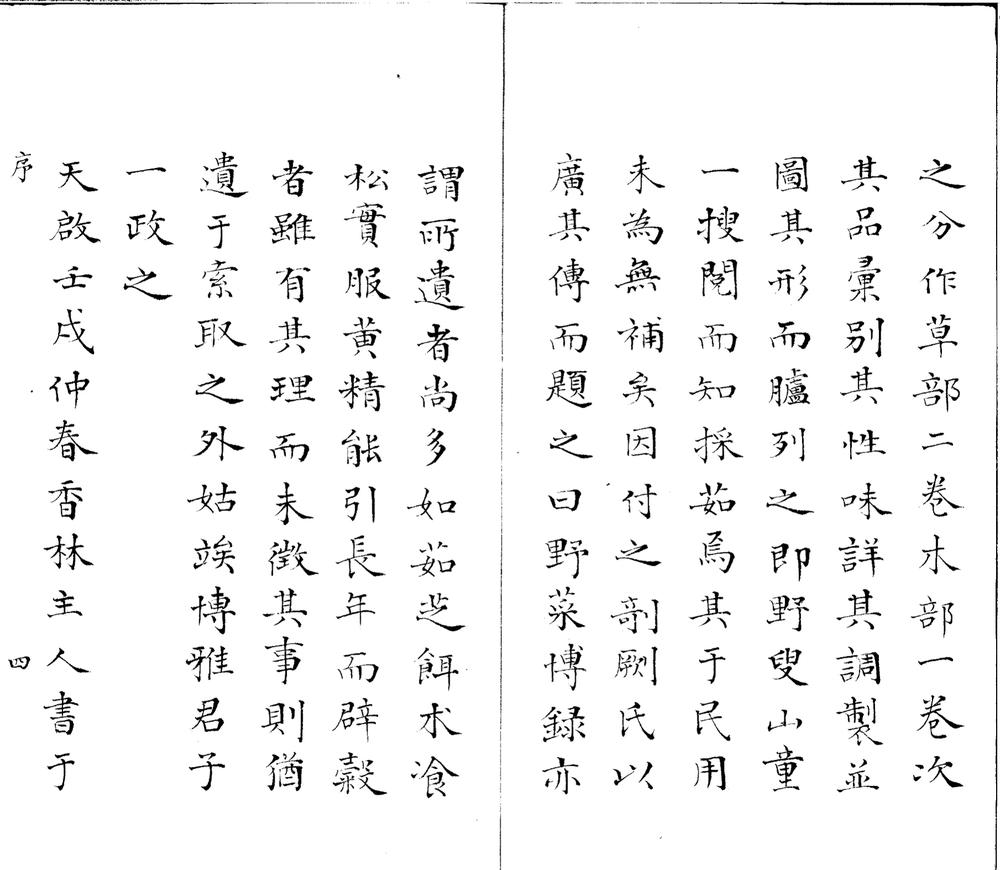 之分作草部二卷木部一卷次
其品彙别其性味詳其調製並
圖其形而臚列之即野叟山童
一搜閱而知採茹焉其于民用
未為無補矣因付之剞劂氏以
廣其傳而題之曰野菜博録亦
謂所遺者尚多如茹芝餌朮飡
松實服黄精能引長年而辟穀
者雖有其理而未徵其事則猶
遺于索取之外姑竢博雅君子
一政之
天啟壬戌仲春香林主人書于
序 四